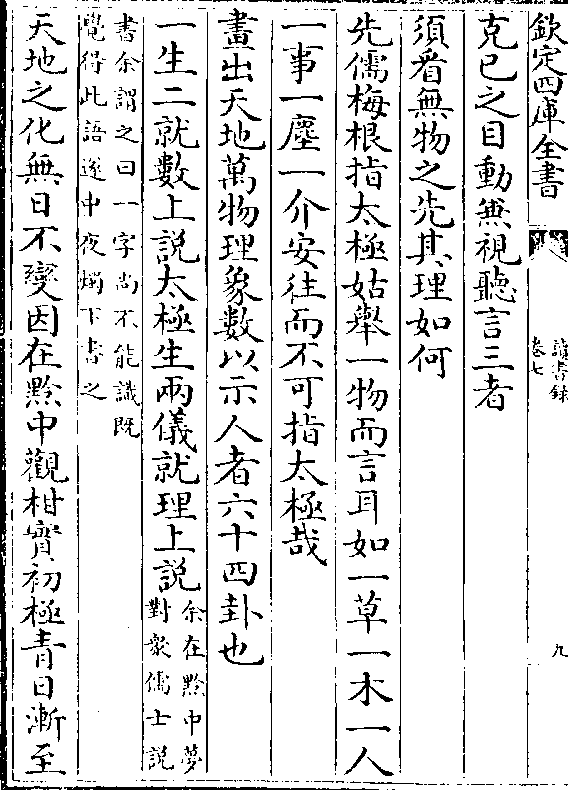 欽定四庫全書
讀書録
卷七
九
克已之目動無視聽言三者
須看無物之先其理如何
先儒梅根指太極姑舉一物而言耳如一草一木一人
一事一塵一介安往而不可指太極哉
畫出天地萬物理象數以示人者六十四卦也
一生二就數上説太極生兩儀就理上説
余在黔中夢
對衆儒士説
書余謂之曰一字尚不能識既
覺得此語遂中夜燭下書之
天地之化無日不變因在黔中觀柑實初極青日漸至